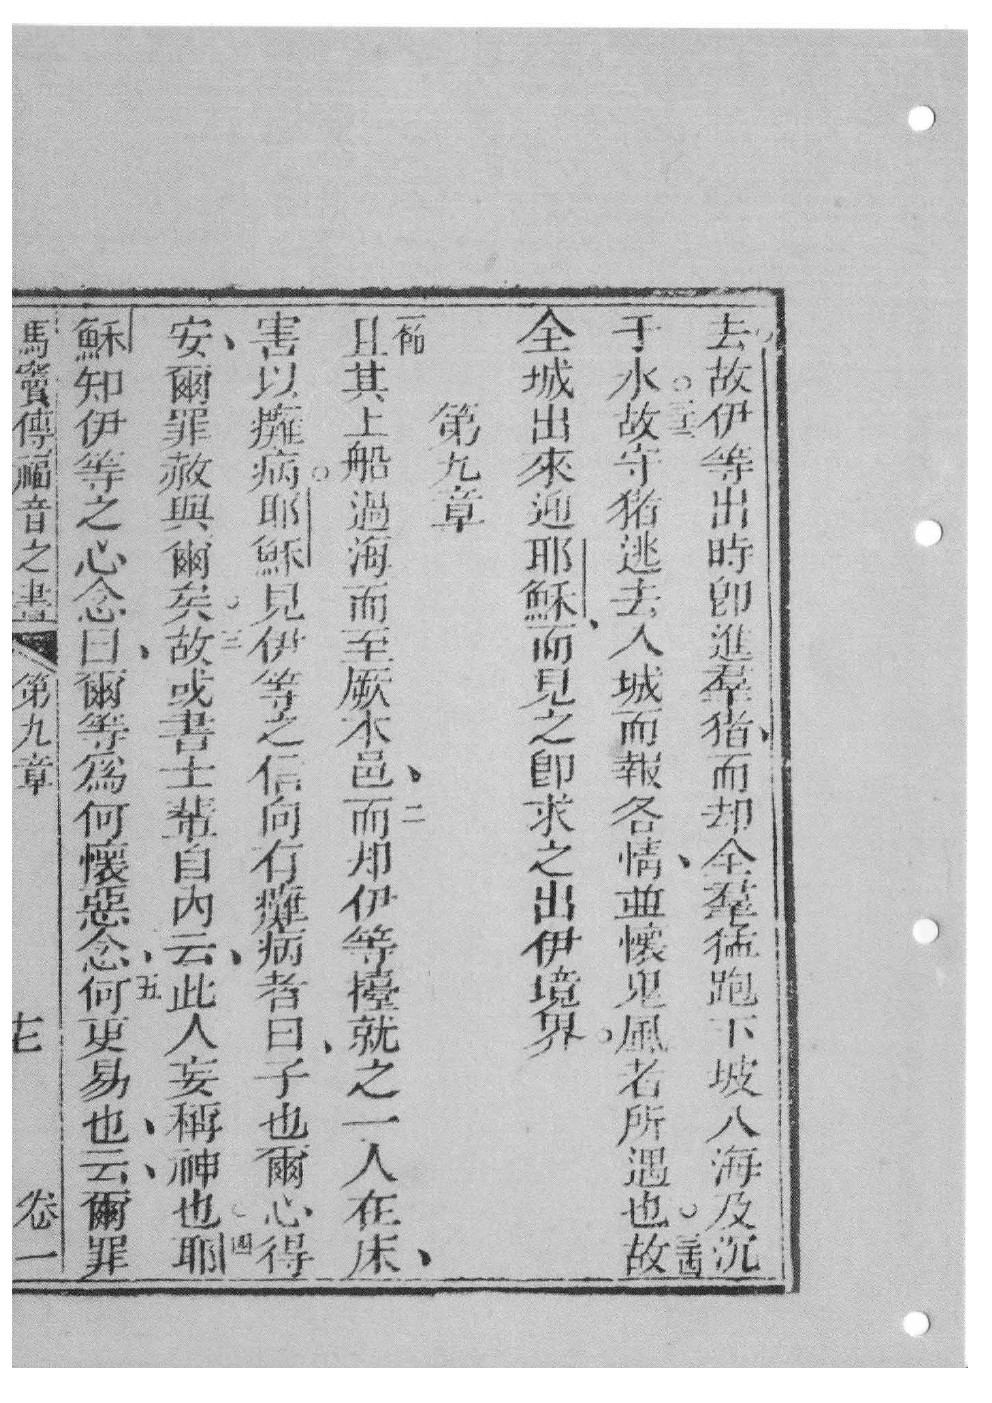 去故伊等出時卽進羣猪、而却全羣猛跑下坡入海及沉
于水。三三故守猪逃去入城而報各情、並懷鬼風者所遇也。三四故
全城出來迎耶穌、而見之卽求之出伊境界。
第九章
一節且其上船過海而至厥本邑、二而却伊等擡就之一人在床、
害以癱病。耶穌見伊等之信向有癱病者曰、子也爾心得
安、爾罪赦與爾矣。三故或書士輩自內云、此人妄稱神也。四耶
穌知伊等之心念曰、爾等爲何懷惡念、五何更易也、云、爾罪
馬竇傳福音之書 第九章 七 卷一